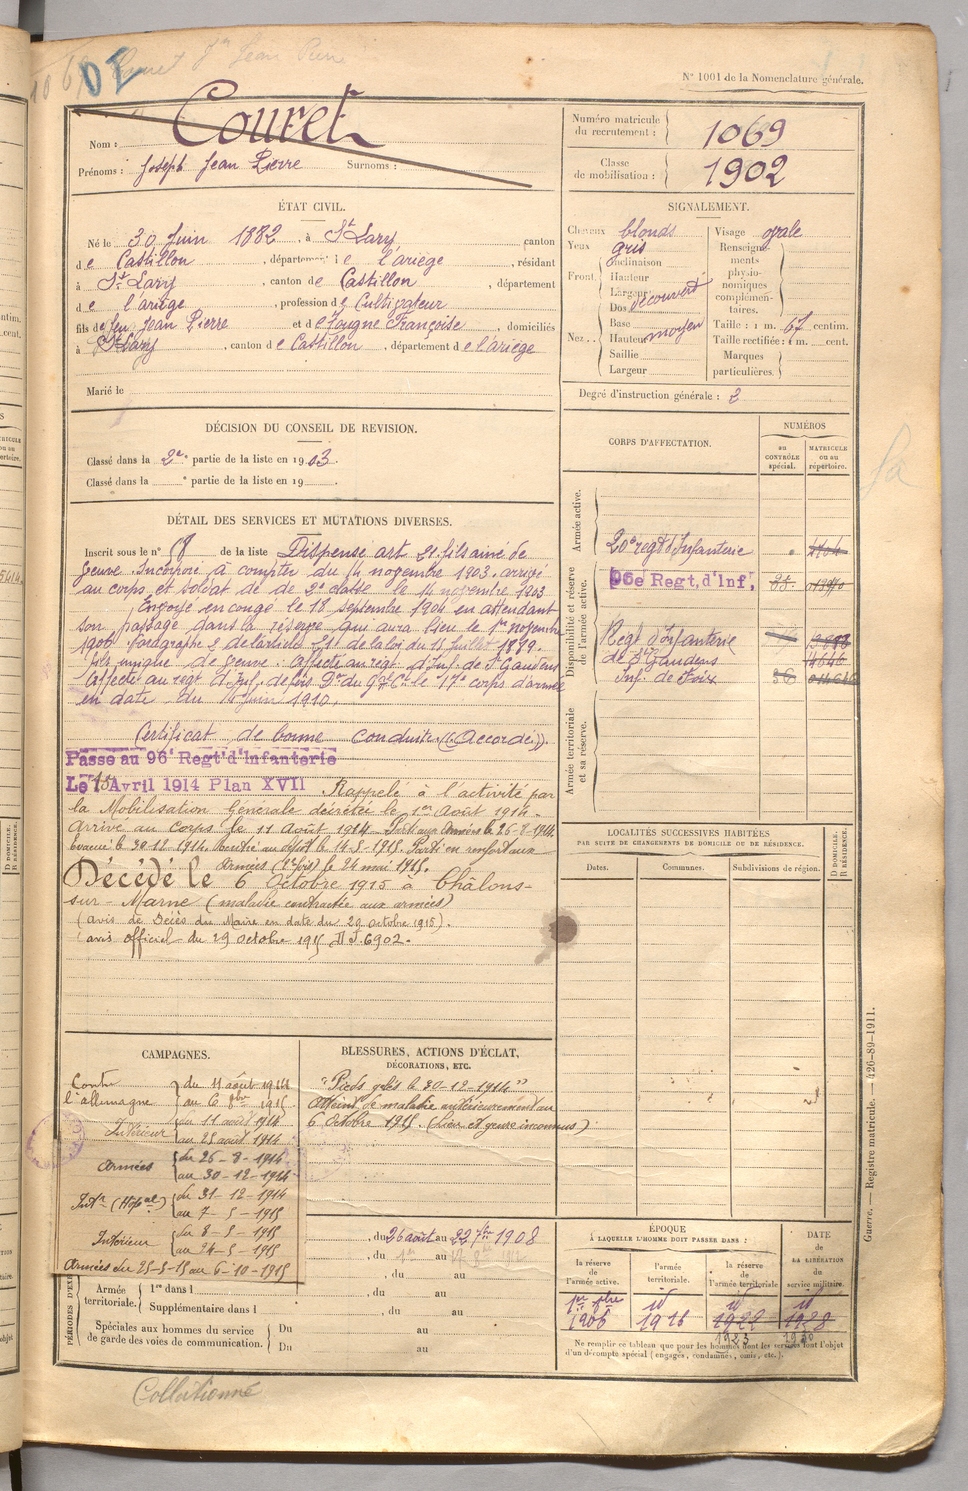 N° 1001 de la Nomenclature générale.
Nom : Couret
Prénoms : Joseph Jean Pierre Surnoms :
Numéro matricule du recrutement : 1069
Classe de mobilisation : 1902
ÉTAT CIVIL.
Né le 30 Juin 1882, à St Lary, canton
de Castillon, département de l'ariège, résidant
à St Lary, canton de Castillon, département
de l'ariège, profession de Cultivateur
fils de feu Jean Pierre et de Fougne Françoise, domiciliés
à St Lary, canton de Castillon, département de l'ariège
Marié le
SIGNALEMENT.
Cheveux blonds
Yeux gris
Front Inclinaison
Hauteur
Largeur découvert
Nez Dos
Base
Hauteur moyen
Saillie
Largeur
Visage ovale
Renseignements physionomiques complémentaires.
Taille : 1 m. 67 centim.
Taille rectifiée : 1 m. cent.
Marques particulières.
Degré d'instruction générale : 2
DÉCISION DU CONSEIL DE REVISION.
Classé dans la 2e partie de la liste en 1903.
Classé dans la e partie de la liste en 19
DÉTAIL DES SERVICES ET MUTATIONS DIVERSES.
Inscrit sous le n° 58 de la liste Dispensé art 21. fils aîné de
veuve. Incorporé à compter du 14 novembre 1903. arrivé
au corps et soldat de de 2e classe le 14 novembre 1903
Envoyé en congé le 18 septembre 1904 en attendant
son passage dans la réserve qui aura lieu le 1er novembre
1906. paragraphe 2 de l'article 21 de la loi du 15 juillet 1889.
fils unique de veuve. affecté au régt d'Inf. de St Gaudens
Affecté au régt d'Inf. de Foix Dn du Gal Ct le 17e corps d'armée
en date du 15 Juin 1910.
Certificat de bonne conduite « Accordé ».
Passé au 96e Regt d'Infanterie
Le 15 Avril 1914 Plan XVII Rappelé à l'activité par
la Mobilisation Générale décrétée le 1er Août 1914.
Arrivé au Corps le 11 Août 1914. Parti aux Armées le 26-8-1914.
Evacué le 30-12-1914. Rentré au dépôt le 14-5-1915. Parti en renfort aux
Armées (2e fois) le 24 mai 1915.
Décédé le 6 Octobre 1915 à Châlons-
sur-Marne (maladie contractée aux armées)
(avis de Décès du Maire en date du 29 octobre 1915).
(avis officiel du 29 octobre 1915 6902.
CORPS D'AFFECTATION.
NUMÉROS
au CONTRÔLE spécial.
MATRICULE ou au répertoire.
Armée active.
20e régt d'Infanterie
Disponibilité et réserve de l'armée active.
96e Regt, d'Inf.
Régt d'Infanterie
de St Gaudens
Inf. de Foix 36
Armée territoriale et sa réserve.
LOCALITÉS SUCCESSIVES HABITÉES
PAR SUITE DE CHANGEMENTS DE DOMICILE OU DE RÉSIDENCE.
Dates. Communes. Subdivisions de région.
D DOMICILE. R RÉSIDENCE.
CAMPAGNES.
Contre l'allemagne du 11 août 1914
au 6 8bre 1915
Intérieur du 11 août 1914
au 25 août 1914
Armées du 26-8-1914
au 30-12-1914
Intr (Hôpal) du 31-12-1914
au 7-5-1915
Intérieur du 8-5-1915
au 24-5-1915
Armées du 25-5-15 au 6-10-1915
BLESSURES, ACTIONS D'ÉCLAT,
DÉCORATIONS, ETC.
"Pieds gelés le 30-12-1914"
Atteint de maladie antérieurement au
6 octobre 1915. (Lieu et genre inconnus)
, du 26 août au 22 7bre 1908
, du au
, du au
Armée territoriale. 1re dans l , du au
Supplémentaire dans l , du au
Spéciales aux hommes du service de garde des voies de communication. Du au
Du au
ÉPOQUE
À LAQUELLE L'HOMME DOIT PASSER DANS :
la réserve de l'armée active.
l'armée territoriale.
la réserve de l'armée territoriale
DATE de LA LIBÉRATION du service militaire.
1906 1916 1922 1928
1923 1930
Ne remplir ce tableau que pour les hommes dont les services font l'objet
d'un décompte spécial (engagés, condamnés, omis, etc.).
Guerre. — Registre matricule. — 426-89-1911.
Collationné